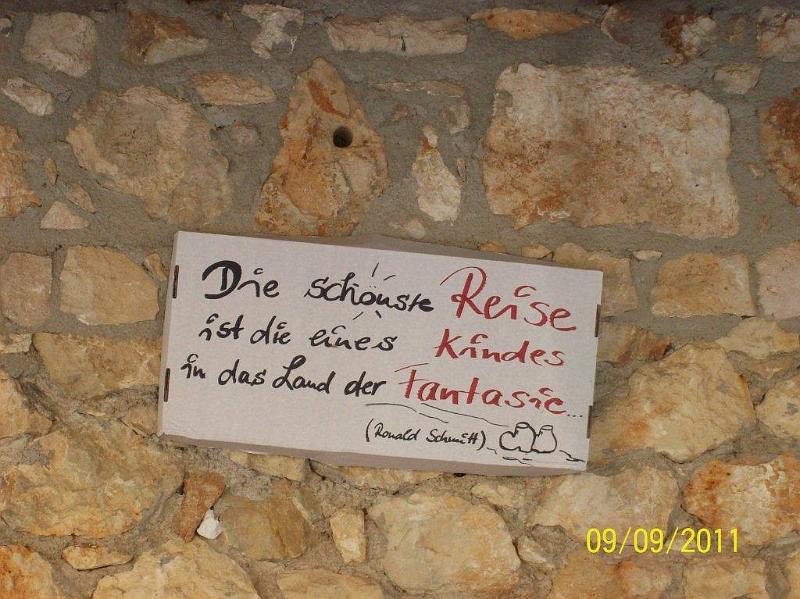 Die schönste Reise
ist die eines Kindes
in das Land der Fantasie...
(Ronald Schmitt)
09/09/2011